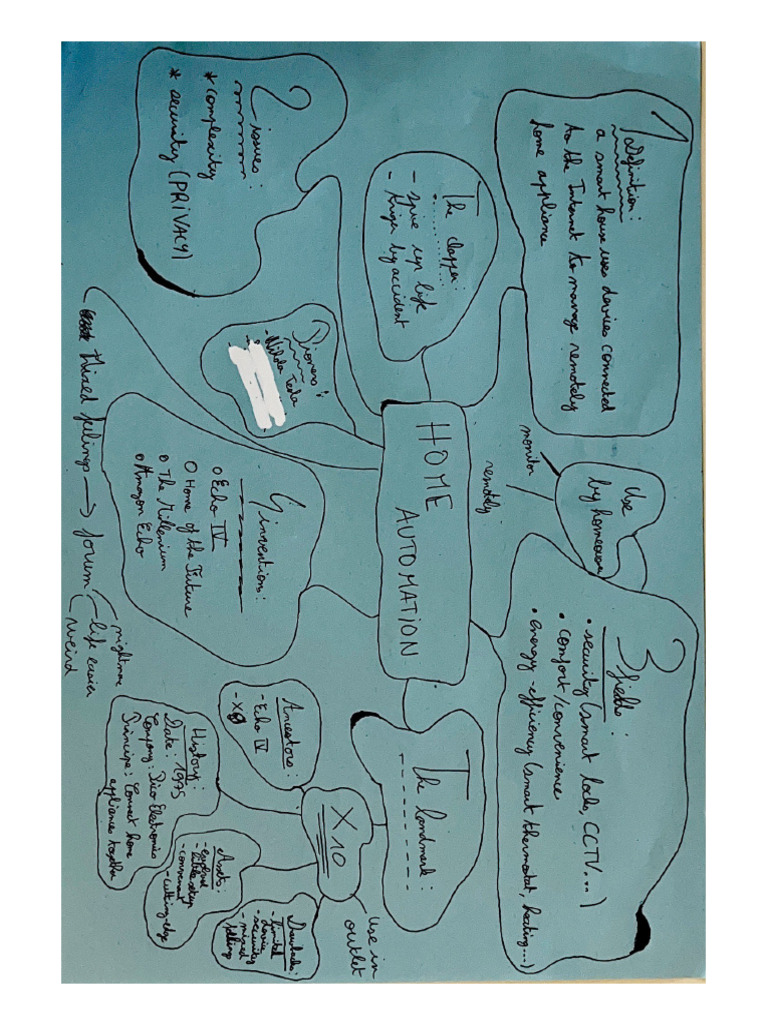 1 Definition:
a smart house use devices connected
to the Internet to manage remotely
home appliance
2 issues:
* complexity
* security (PRIVACY)
The clapper:
- spive up life
- triger by accident
Pioneers:
- Nikola Tesla
HOME
AUTOMATION
Use
by homeowner
monitor
remotely
3 fields:
• security (smart locks, CCTV...)
• comfort/convenience
• energy-efficiency (smart thermostat, heating...)
4 inventions:
o Echo IV
o Home of the Future
o The Millenium
o Amazon Echo
Mixed feelings → forum
nightmare
life easier
weird
The landmark:
X10
Use in
outlet
Ancestors:
- Echo IV
History:
Date: 1975
Company: Pico Electronics
Principe: Connect home
appliance together
Assets:
- cutting edge
- convenient
Drawbacks:
- limited
device
- security
- mixed
feeling